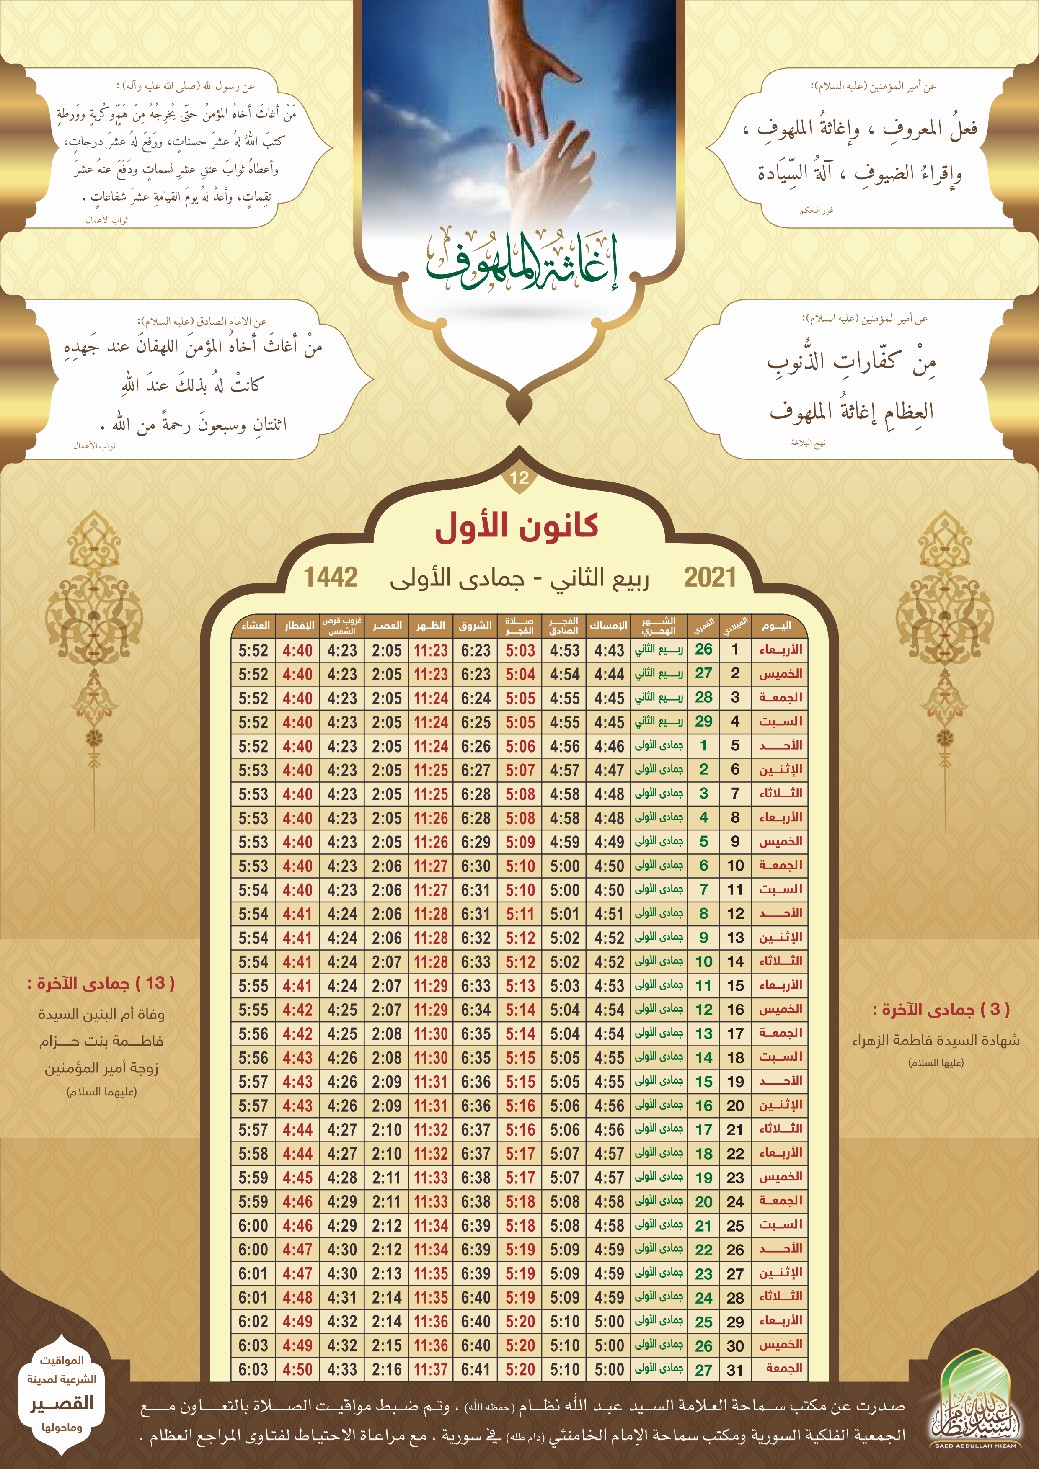 إغاثة الملهوف
عن أمير المؤمنين (عليه السلام):
فعلُ المعروفِ ، وإغاثةُ الملهوفِ ،
وإقراءُ الضيوفِ ، آلةُ السِّيَادة
غرر الحكم
عن رسول الله (صلى الله عليه وآله) :
مَنْ أغاثَ أخاهُ المؤمنَ حتّى يُخرِجَهُ مِنْ هَمٍّ وكُربةٍ وورطةٍ
كتبَ اللهُ لهُ عشرَ حسناتٍ، ورفَعَ لهُ عشرَ درجاتٍ،
وأعطاهُ ثوابَ عتقِ عشرِ نسماتٍ ودَفَعَ عنهُ عشرَ
نقِماتٍ، وأعدَّ لهُ يومَ القيامةِ عشرَ شفاعاتٍ .
ثواب الأعمال
عن أمير المؤمنين (عليه السلام):
مِنْ كفّاراتِ الذُّنوبِ
العِظامِ إغاثةُ الملهوف
نهج البلاغة
عن الامام الصادق (عليه السلام):
منْ أغاثَ أخاهُ المؤمنَ اللهفانَ عند جَهدِهِ
كانتْ لهُ بذلكَ عندَ اللهِ
اثنتانِ وسبعونَ رحمةً من الله .
ثواب الأعمال
12
كانون الأول
2021 ربيع الثاني - جمادى الأولى 1442
اليوم الميلادي القمري الشهر الهجري الإمساك الفجر الصادق صلاة الفجر الشروق الظهر العصر غروب قرص الشمس الإفطار العشاء
الأربعاء 1 26 ربيع الثاني 4:43 4:53 5:03 6:23 11:23 2:05 4:23 4:40 5:52
الخميس 2 27 ربيع الثاني 4:44 4:54 5:04 6:23 11:23 2:05 4:23 4:40 5:52
الجمعة 3 28 ربيع الثاني 4:45 4:55 5:05 6:24 11:24 2:05 4:23 4:40 5:52
السبت 4 29 ربيع الثاني 4:45 4:55 5:05 6:25 11:24 2:05 4:23 4:40 5:52
الأحد 5 1 جمادى الأولى 4:46 4:56 5:06 6:26 11:24 2:05 4:23 4:40 5:52
الإثنين 6 2 جمادى الأولى 4:47 4:57 5:07 6:27 11:25 2:05 4:23 4:40 5:53
الثلاثاء 7 3 جمادى الأولى 4:48 4:58 5:08 6:28 11:25 2:05 4:23 4:40 5:53
الأربعاء 8 4 جمادى الأولى 4:48 4:58 5:08 6:28 11:26 2:05 4:23 4:40 5:53
الخميس 9 5 جمادى الأولى 4:49 4:59 5:09 6:29 11:26 2:05 4:23 4:40 5:53
الجمعة 10 6 جمادى الأولى 4:50 5:00 5:10 6:30 11:27 2:06 4:23 4:40 5:53
السبت 11 7 جمادى الأولى 4:50 5:00 5:10 6:31 11:27 2:06 4:23 4:40 5:54
الأحد 12 8 جمادى الأولى 4:51 5:01 5:11 6:31 11:28 2:06 4:24 4:41 5:54
الإثنين 13 9 جمادى الأولى 4:52 5:02 5:12 6:32 11:28 2:06 4:24 4:41 5:54
الثلاثاء 14 10 جمادى الأولى 4:52 5:02 5:12 6:33 11:28 2:07 4:24 4:41 5:54
الأربعاء 15 11 جمادى الأولى 4:53 5:03 5:13 6:33 11:29 2:07 4:24 4:41 5:55
الخميس 16 12 جمادى الأولى 4:54 5:04 5:14 6:34 11:29 2:07 4:25 4:42 5:55
الجمعة 17 13 جمادى الأولى 4:54 5:04 5:14 6:35 11:30 2:08 4:25 4:42 5:56
السبت 18 14 جمادى الأولى 4:55 5:05 5:15 6:35 11:30 2:08 4:26 4:43 5:56
الأحد 19 15 جمادى الأولى 4:55 5:05 5:15 6:36 11:31 2:09 4:26 4:43 5:57
الإثنين 20 16 جمادى الأولى 4:56 5:06 5:16 6:36 11:31 2:09 4:26 4:43 5:57
الثلاثاء 21 17 جمادى الأولى 4:56 5:06 5:16 6:37 11:32 2:10 4:27 4:44 5:57
الأربعاء 22 18 جمادى الأولى 4:57 5:07 5:17 6:37 11:32 2:10 4:27 4:44 5:58
الخميس 23 19 جمادى الأولى 4:57 5:07 5:17 6:38 11:33 2:11 4:28 4:45 5:59
الجمعة 24 20 جمادى الأولى 4:58 5:08 5:18 6:38 11:33 2:11 4:29 4:46 5:59
السبت 25 21 جمادى الأولى 4:58 5:08 5:18 6:39 11:34 2:12 4:29 4:46 6:00
الأحد 26 22 جمادى الأولى 4:59 5:09 5:19 6:39 11:34 2:12 4:30 4:47 6:00
الإثنين 27 23 جمادى الأولى 4:59 5:09 5:19 6:39 11:35 2:13 4:30 4:47 6:01
الثلاثاء 28 24 جمادى الأولى 4:59 5:09 5:19 6:40 11:35 2:14 4:31 4:48 6:01
الأربعاء 29 25 جمادى الأولى 5:00 5:10 5:20 6:40 11:36 2:14 4:32 4:49 6:02
الخميس 30 26 جمادى الأولى 5:00 5:10 5:20 6:40 11:36 2:15 4:32 4:49 6:03
الجمعة 31 27 جمادى الأولى 5:00 5:10 5:20 6:41 11:37 2:16 4:33 4:50 6:03
( 3 ) جمادى الآخرة :
شهادة السيدة فاطمة الزهراء
(عليها السلام)
( 13 ) جمادى الآخرة :
وفاة أم البنين السيدة
فاطمة بنت حزام
زوجة أمير المؤمنين
(عليهما السلام)
المواقيت
الشرعية لمدينة
القصير
وماحولها
صدرت عن مكتب سماحة العلامة السيد عبد الله نظام (حفظه الله) ، وتم ضبط مواقيت الصلاة بالتعاون مع
الجمعية الفلكية السورية ومكتب سماحة الإمام الخامنئي (دام ظله) في سورية ، مع مراعاة الاحتياط لفتاوى المراجع العظام .
السيد عبد الله نظام
SAED ABDULLAH NIZAM